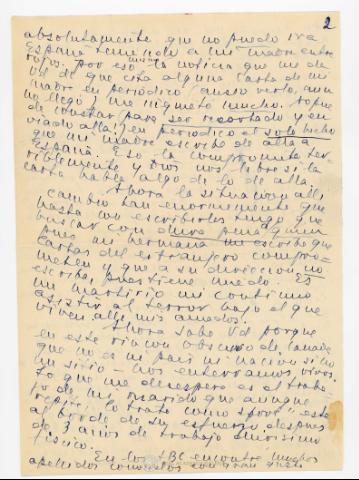 2
absolutamente que no puedo ir a
España teniendo a mi madre entre
rojos. Por eso la misma noticia que me da
Vd de que esta alguna carta de mi
madre en periodico (ansio verlo, aun
no llegó) me inquietó mucho. 
de bastar para ser recortado y en
viado allá! en periodico el solo hecho
que mi madre escribe de allá a
España. Eso la compromete ter
riblemente y Dios nos libre si la
carta habla algo de lo de allá.
Ahora la situacion alli
cambio tan enormemente que
hasta con escribirles tengo que
buscar con dura pena quien
pues mi hermana me escribe que
cartas del extranjero compro-
meten y que a su direccion no
escriba, pues tiene miedo. Es
un martirio mi continuo
asistir al terror bajo el que
viven alli mis amados.
Ahora sabe Vd porque
en este rincon obscuro de Canada
que no es mi pais ni nacion sino
un sitio - nos enterramos vivos.
Lo que me desespera es el traba
jo de mi marido que aunque
lo trata como "sport" esta
al borde de su esfuerzo despues
de 3 años de trabajo durisimo
fisico.
En los ABC encontre muchos
apellidos conocidos con gran gusto